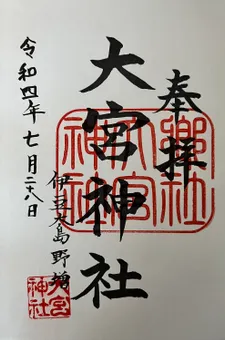 奉拝
郷社
大宮
神社
大宮神社
伊豆大島野増
大宮
神社
令和四年七月二十八日